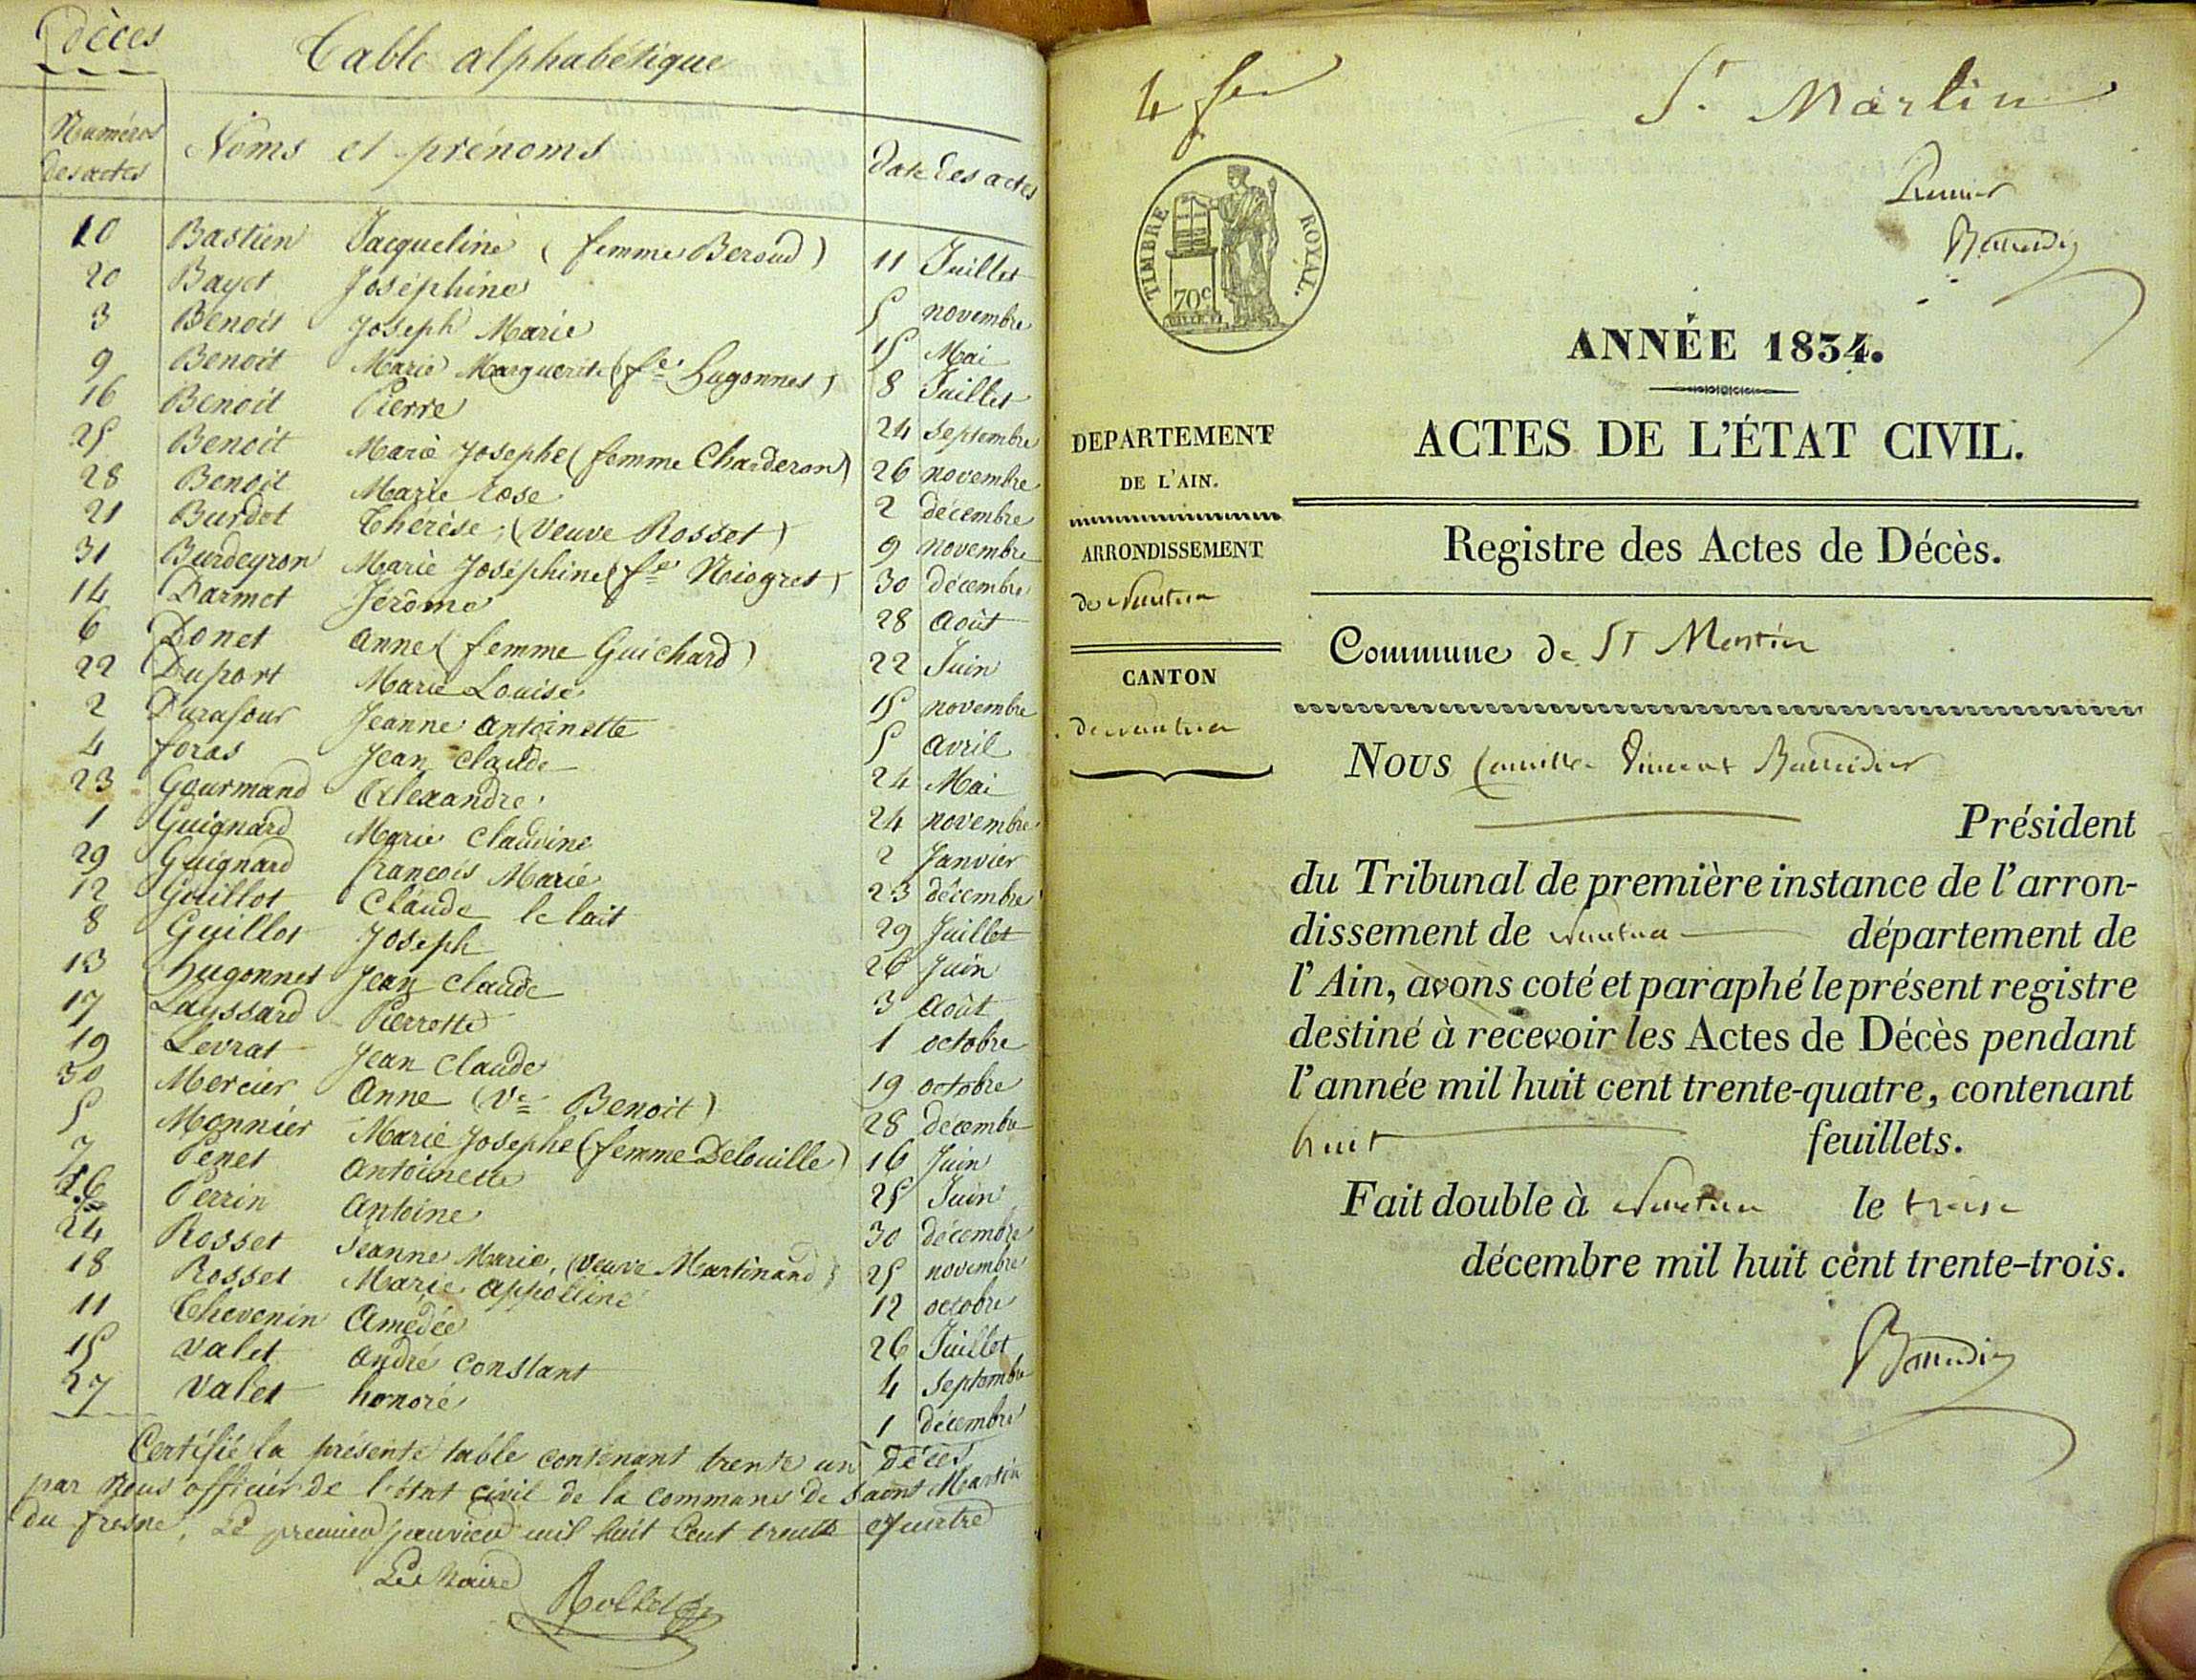 Décès
Table alphabétique
Numéros des actes
Noms et prénoms
Date des actes
10 Bastien Jacqueline (femme Beroud) 11 Juillet
20 Bayet Joséphine 5 novembre
3 Benoit Joseph Marie 15 Mai
9 Benoit Marie Marguerite (fe Hugonnet) 8 Juillet
16 Benoit Pierre 24 septembre
25 Benoit Marie Josephe (femme Charderon) 26 novembre
28 Benoit Marie rose 2 décembre
21 Burdet Thérèse, (veuve Rosset) 9 novembre
31 Burdeyron Marie Joséphine (fe Niogret) 30 décembre
14 Darmet Jérôme 28 août
6 Donet anne (femme Guichard) 22 Juin
22 Duport Marie Louise 15 novembre
2 Durafour Jeanne antoinette 5 avril
4 foras Jean claude 24 Mai
23 Gourmand Alexandre 24 novembre
1 Guignard Marie claudine 2 Janvier
29 Guignard françois Marie 23 décembre
12 Guillot Claude le lait 29 Juillet
8 Guillot Joseph 26 Juin
13 Hugonnet Jean claude 3 août
17 Layssard Pierrette 1 octobre
19 Levrat Jean claude 19 octobre
30 Mercier Anne (Ve Benoit) 28 décembre
5 Monnier Marie Josephe (femme Delouille) 16 Juin
7 Penet antoinette 25 Juin
26 Perrin antoine 30 décembre
24 Rosset Jeanne Marie, (veuve Martinand) 25 novembre
18 Rosset Marie appolline 12 octobre
11 Thevenin Amédée 26 Juillet
15 valet andré constant 4 septembre
27 valet honoré 1 décembre
Certifié la présente table contenant trente un Décès
par nous officier de l'état civil de la commune de Saint Martin
du fresne, Le premier janvier mil huit Cent trente quatre
Le Maire
St. Martin
Premier
TIMBRE ROYAL.
70c
ANNÉE 1834.
ACTES DE L'ÉTAT CIVIL.
DEPARTEMENT
DE L'AIN.
ARRONDISSEMENT
de Nantua
CANTON
de nantua
Registre des Actes de Décès.
Commune de St Martin
Nous Camille Vincent Baudier
Président
du Tribunal de première instance de l'arron-
dissement de Nantua département de
l'Ain, avons coté et paraphé le présent registre
destiné à recevoir les Actes de Décès pendant
l'année mil huit cent trente-quatre, contenant
huit feuillets.
Fait double à Nantua le treize
décembre mil huit cent trente-trois.